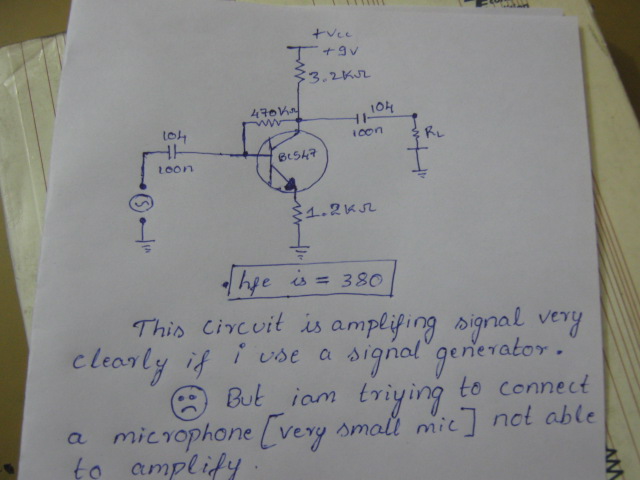 +Vcc
+9v
3.2KΩ
470KΩ
104
100n
RL
104
100n
BC547
1.2KΩ
hfe is = 380
This circuit is amplifing signal very
clearly if i use a signal generator.
But iam triying to connect
a microphone [very small mic] not able
to amplify.